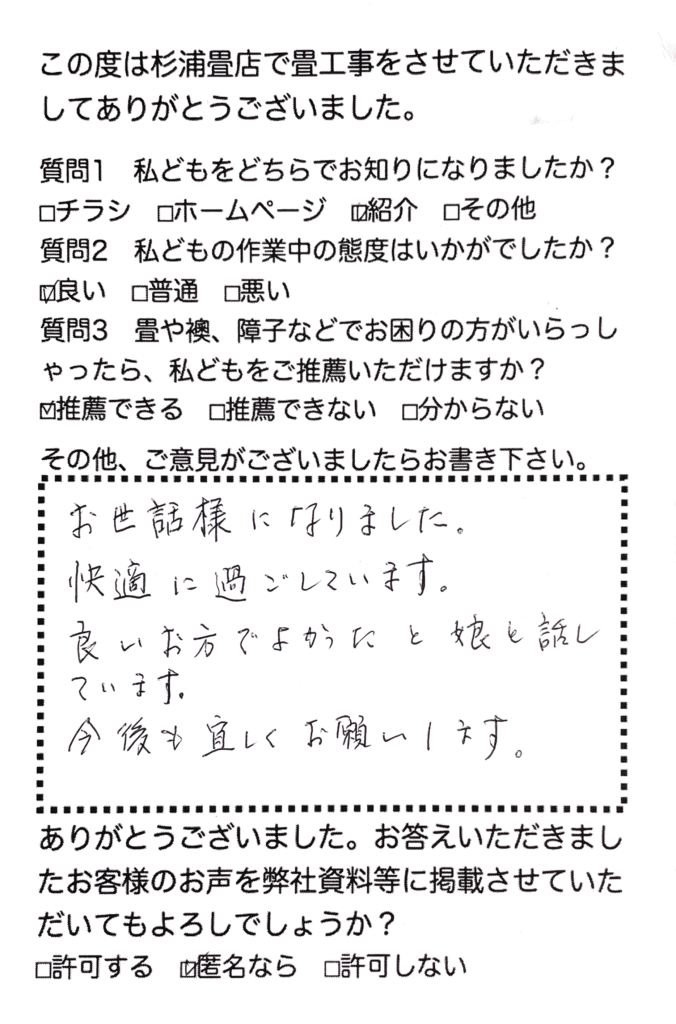 この度は杉浦畳店で畳工事をさせていただきま
してありがとうございました。
質問1　私どもをどちらでお知りになりましたか？
□チラシ　□ホームページ　☑紹介　□その他
質問2　私どもの作業中の態度はいかがでしたか？
☑良い　□普通　□悪い
質問3　畳や襖、障子などでお困りの方がいらっし
ゃったら、私どもをご推薦いただけますか？
☑推薦できる　□推薦できない　□分からない
その他、ご意見がございましたらお書き下さい。
お世話様になりました。
快適に過ごしています。
良いお方でよかったと娘と話し
ています。
今後も宜しくお願いします。
ありがとうございました。お答えいただきまし
たお客様のお声を弊社資料等に掲載させていた
だいてもよろしでしょうか？
□許可する　☑匿名なら　□許可しない